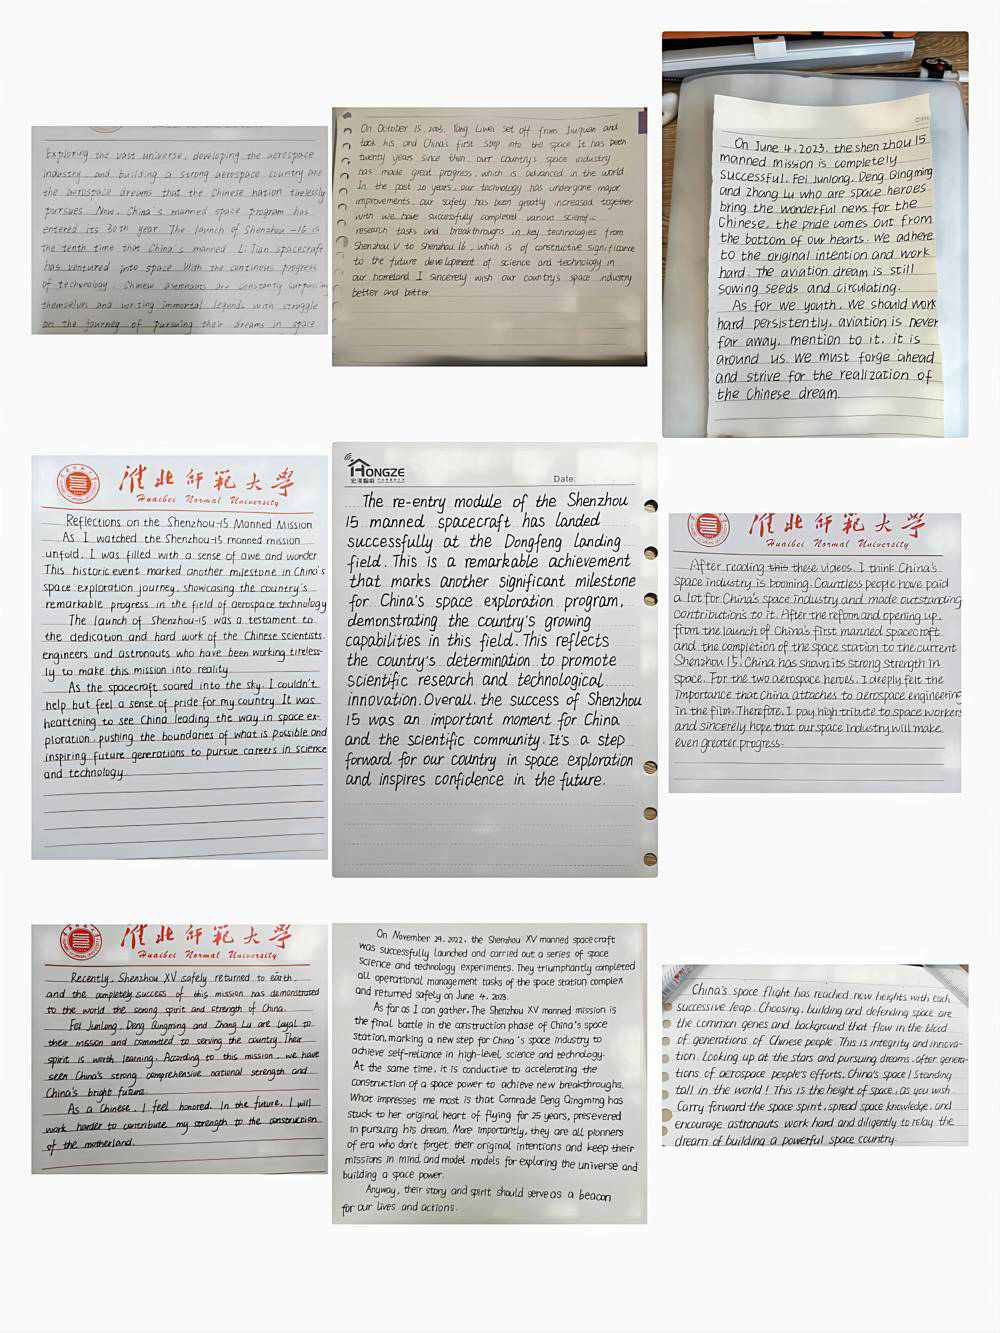 Exploring the vast universe, developing the aerospace
industry and building a strong aerospace country are
the aerospace dreams that the Chinese nation tirelessly
pursues. Now, China's manned space program has
entered its 30th year. The launch of Shenzhou -16 is
the tenth time that China's manned LiTian spacecraft
has ventured into space. With the continous progress
of technology, Chinese are constantly surpassing
themselves and writing immortal legends with struggle
on the journey of pursuing their dreams in space
On October 15, 2003, Yang Liwei set off from Jiuquan and
took his and China's first step into the space It has been
twenty years since then, our country's space industry
has made great progress, which is advanced in the world
In the past 20 years, our technology has undergone major
improvements, our safety has been greatly increased together
with we have successfully completed various scientific
research tasks and breakthroughs in key technologies from
Shenzhou V to Shenzhou 16, which is of constructive significance
to the future development of science and technology in
our homeland I sincerely wish our country's space industry
better and better.
Date
On June 4, 2023, the shen zhou 15
manned mission is completely
successful. Fei Junlong, Deng Qingming
and zhang Lu who are space heroes
bring the wonderful news for the
Chinese, the pride comes out from
the bottom of our hearts. We adhere
to the original intention and work
hard. The aviation dream is still
sowing seeds and circulating.
As for we youth, we should work
hard persistently, aviation is never
far away, mention to it, it is
around us. We must forge ahead
and strive for the realization of
the Chinese dream.
淮北师范大学
Huaibei Normal University
Reflections on the Shenzhou-15 Manned Mission
As I watched the Shenzhou-15 manned mission
unfold, I was filled with a sense of awe and wonder
This historic event marked another milestone in China's
space exploration journey, showcasing the country's
remarkable progress in the field of aerospace technology
The launch of Shenzhou-15 was a testament to
the dedication and hard work of the Chinese scientists.
engineers and astronauts who have been working tireless-
ly to make this mission into reality
As the spacecraft soared into the sky, I couldn't
help but feel a sense of pride for my country. It was
heartening to see China leading the way in space ex-
ploration, pushing the boundaries of what is possible and
inspiring future generations to pursue careers in science
and technology
HONGZE
Date:
The re-entry module of the Shenzhou
15 manned spacecraft has landed
successfully at the Dongfeng landing
field. This is a remarkable achievement
that marks another significant milestone
for China's space exploration program,
demonstrating the country's growing
capabilities in this field. This reflects
the country's determination to promote
scientific research and technological
innovation. Overall, the success of Shenzhou
15 was an important moment for China
and the scientific community. It's a step
forward for our country in space exploration
and inspires confidence in the future.
淮北师范大学
Huaibei Normal University
After reading this these videos, I think China's
space industry is booming. Countless people have paid
a lot for China's space industry and made outstanding
contributions to it. After the reform and opening up,
from the launch of China's first manned spacecraft
and the completion of the space station to the current
Shenzhou 15, China has shown its strong strength in
space. For the two aerospace heroes, I deeply felt the
importance that China attaches to aerospace engineering
in the film. Therefore, I pay high tribute to space workers
and sincerely hope that our space industry will make
even greater progress.
淮北师范大学
Huaibei Normal University
Recently, Shenzhou XV safely returned to earth,
and the completely success of this mission has demonstrated
to the world the strong spirit and strength of China.
Fei Junlong, Deng Qingming and Zhang Lu are loyal to
their mission and committed to serving the country. Their
spirit is worth learning. According to this mission, we have
seen China's strong comprehensive national strength and
China's bright future.
As a Chinese, I feel honored. In the future, I will
work harder to contribute my strength to the construction
of the motherland.
On November 29, 2022, the Shenzhou XV manned spacecraft
was successfully launched and carried out a series of space
science and technology experiments. They triumphantly completed
all operational management tasks of the space station complex
and returned safely on June 4, 2023.
As far as I can gather, The Shenzhou XV manned mission is
the final battle in the construction phase of China's space
station, marking a new step for China's space industry to
achieve self-reliance in high-level science and technology.
At the same time, it is conducive to accelerating the
construction of a space power to achieve new breakthroughs.
What impresses me most is that Comrade Deng Qingming has
stuck to her original heart of flying for 25 years, presevered
in pursuing his dream. More importantly, they are all pionners
of era who don't forget their original intentions and keep their
missions in mind, and model models for exploring the universe and
building a space power.
Anyway, their story and spirit should serve as a beacon
for our lives and actions.
China's space flight has reached new heights with each
successive leap. Choosing, building and defending space are
the common genes and background that flow in the blood
of generations of Chinese people. This is integrity and innova-
tion. Looking up at the stars and pursuing dreams, after genera-
tions of aerospace people's efforts, China's space I standing
tall in the world! This is the height of space, as you wish.
Carry forward the space spirit, spread space knowledge, and
encourage astronauts work hard and diligently to relay the
dream of building a powerful space country.